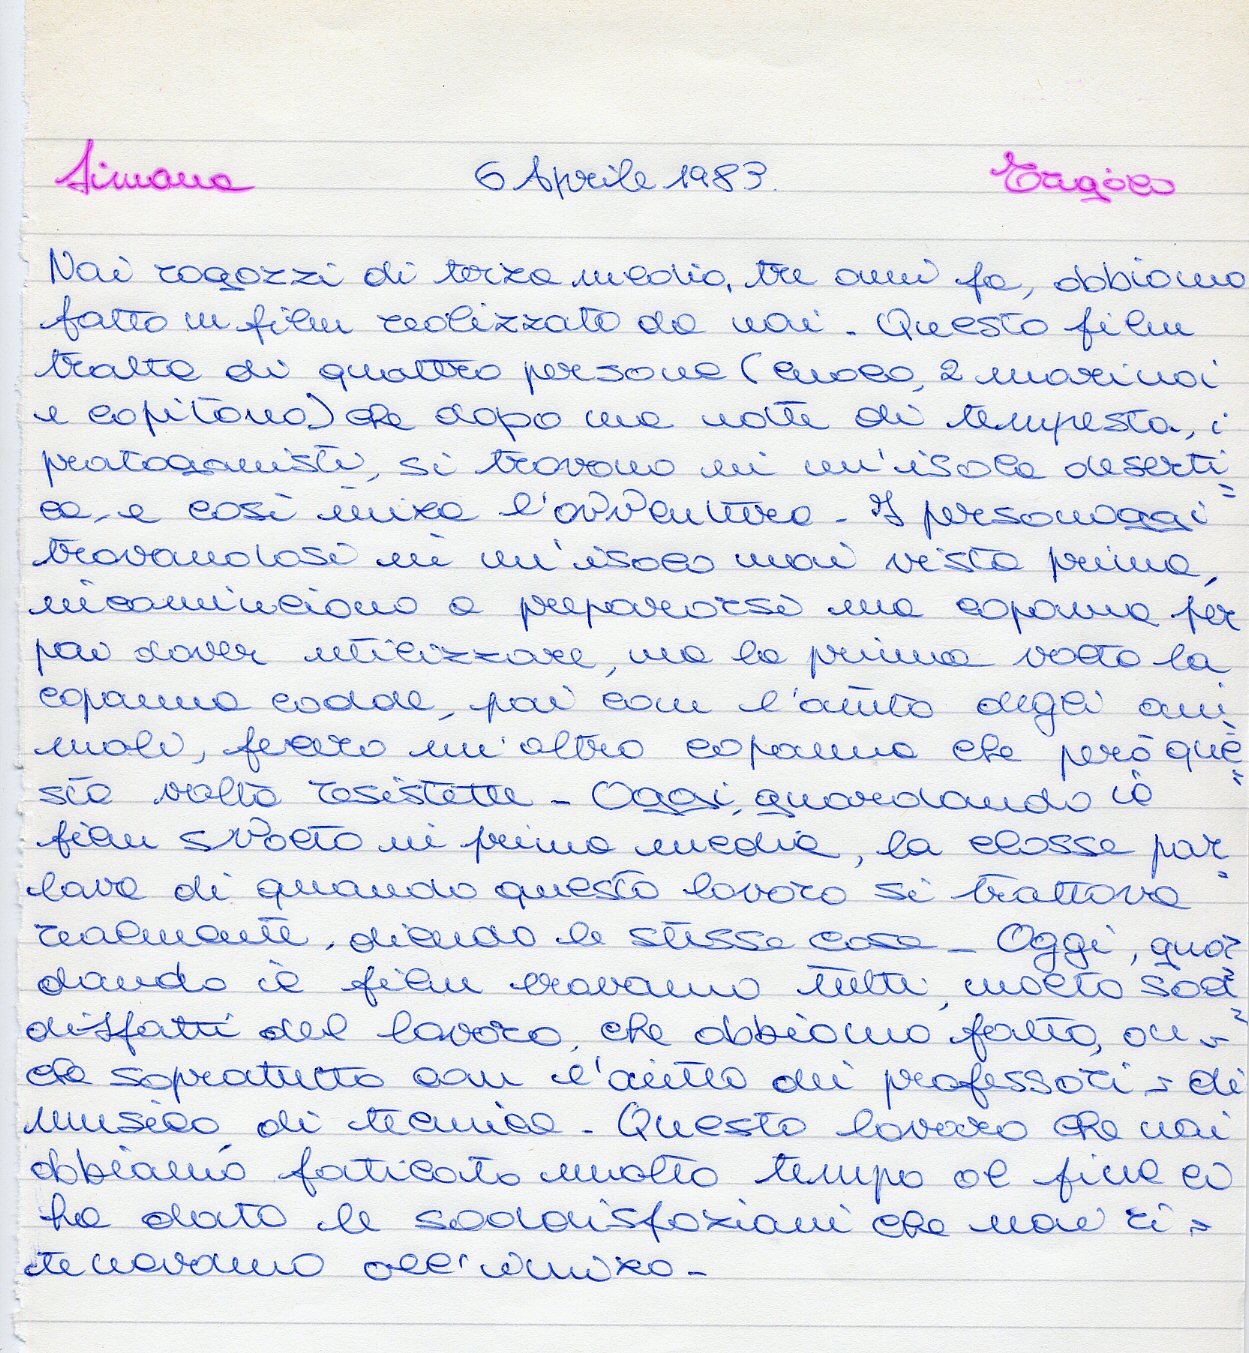 Simona 6 Aprile 1983.
Noi ragazzi di terza media, tre anni fa, abbiamo
fatto un film realizzato da noi. Questo film
tratta di quattro persone (cuoco, 2 marinai
e capitano) che dopo una notte di tempesta, i
protagonisti, si trovano in un'isola deserti=
ca, e così inizia l'avventura. I personaggi
trovandosi in un'isola mai vista prima,
incominciano a prepararsi una capanna per
poi dover utilizzare, ma la prima volta la
capanna cadde, poi con l'aiuto degli ani=
mali, fecero un'altra capanna che però que=
sta volta resistette. Oggi, guardando il
film svolto in prima media, la classe par=
lava di quando questo lavoro si trattava
realmente, dicendo le stesse cose. Oggi, guar=
dando il film eravamo tutti, molto sod=
disfatti del lavoro, che abbiamo fatto, an=
che sopratutto con l'aiuto dei professori = di
musica, di tecnica. Questo lavoro che noi
abbiamo faticato molto tempo al fine ci
ha dato le soddisfazioni che non ri=
tenevamo all'inizio.